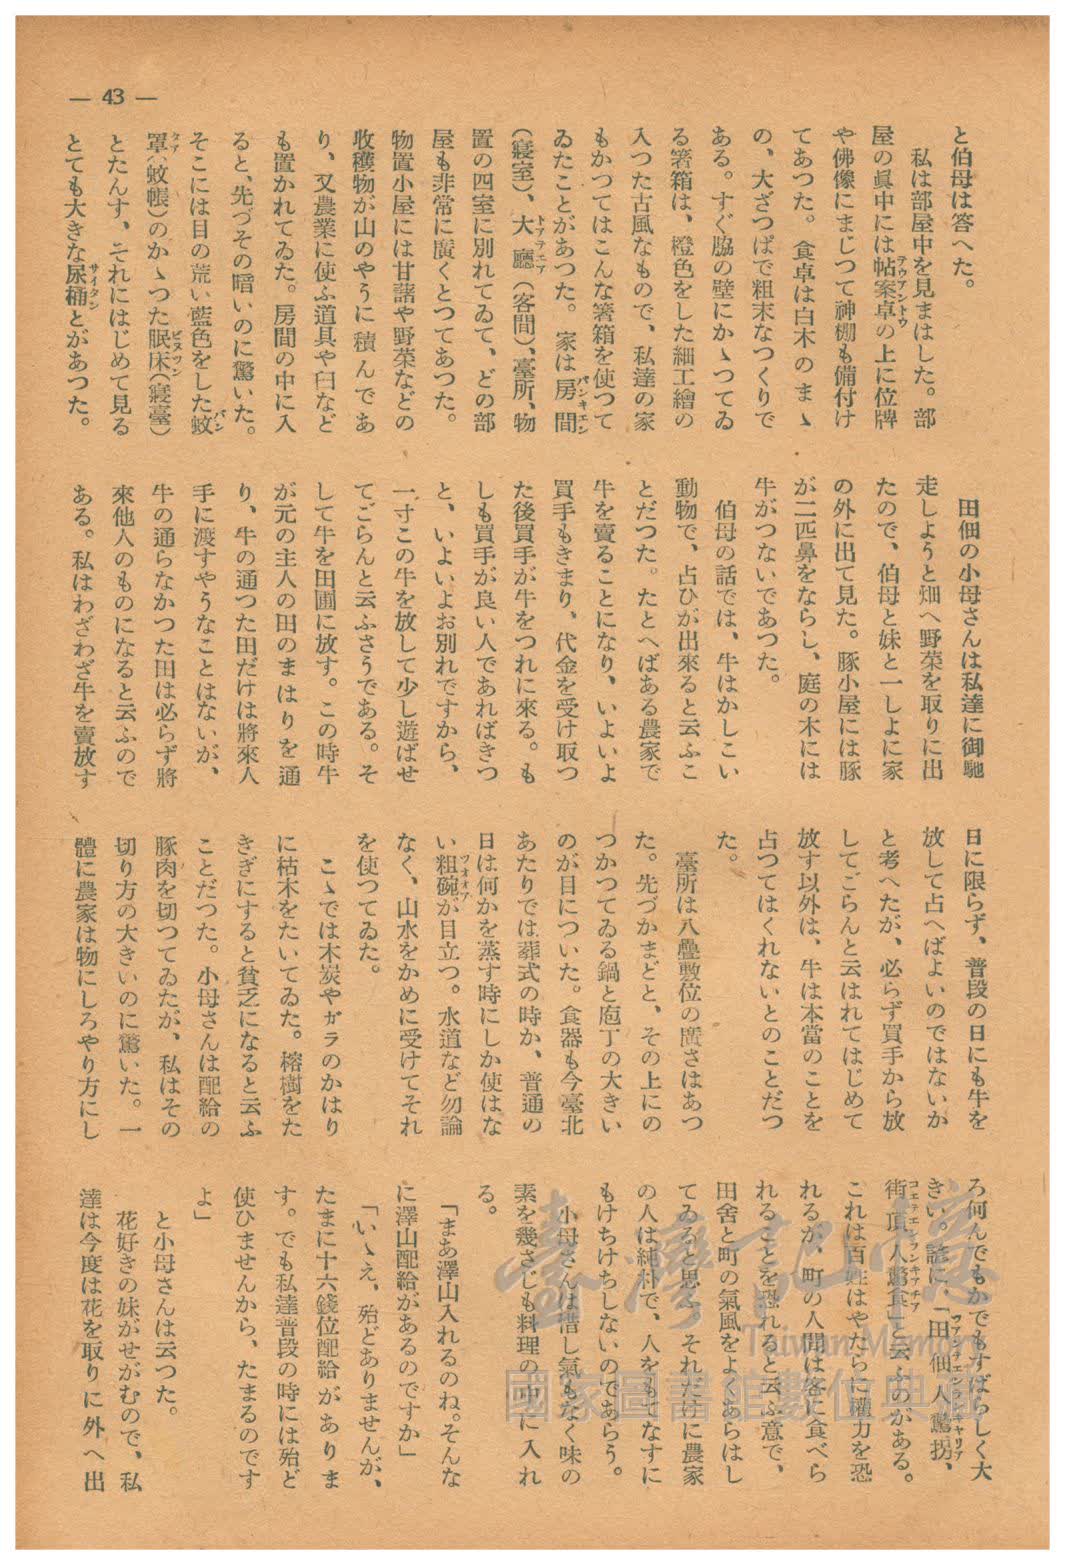 — 43 —
と伯母は答へた。
私は部屋中を見まはした。部
屋の眞中には帖案卓の上に位牌
や佛像にまじつて神棚も備付け
てあつた。食卓は白木のまゝ
の、大ざつぱで粗末なつくりで
ある。すぐ脇の壁にかゝつてゐ
る箸箱は、橙色をした細工繪の
入つた古風なもので、私達の家
もかつてはこんな箸箱を使つて
ゐたことがあつた。家は房間
(寢室)、大廳(客間)、臺所、物
置の四室に別れてゐて、どの部
屋も非常に廣くとつてあつた。
物置小屋には甘藷や野菜などの
收穫物が山のやうに積んであ
り、又農業に使ふ道具や臼など
も置かれてゐた。房間の中に入
ると、先づその暗いのに驚いた。
そこには目の荒い藍色をした蚊
罩(蚊帳)のかゝつた眠床(寢臺)
とたんす、それにはじめて見る
とても大きな尿桶とがあつた。
田佃の小母さんは私達に御馳
走しようと畑へ野菜を取りに出
たので、伯母と妹と一しよに家
の外に出て見た。豚小屋には豚
が二匹鼻をならし、庭の木には
牛がつないであつた。
伯母の話では、牛はかしこい
動物で、占ひが出來ると云ふこ
とだつた。たとへばある農家で
牛を賣ることになり、いよいよ
買手もきまり、代金を受け取つ
た後買手が牛をつれに來る。も
しも買手が良い人であればきつ
と、いよいよお別れですから、
一寸この牛を放して少し遊ばせ
てごらんと云ふさうである。そ
して牛を田圃に放す。この時牛
が元の主人の田のまはりを通
り、牛の通つた田だけは將來人
手に渡すやうなことはないが、
牛の通らなかつた田は必らず將
來他人のものになると云ふので
ある。私はわざわざ牛を賣放す
日に限らず、普段の日にも牛を
放して占へばよいのではないか
と考へたが、必らず買手から放
してごらんと云はれてはじめて
放す以外は、牛は本當のことを
占つてはくれないとのことだつ
た。
臺所は八疊敷位の廣さはあつ
た。先づかまどと、その上にの
つかつてゐる鍋と庖丁の大きい
のが目についた。食器も今臺北
あたりでは葬式の時か、普通の
日は何かを蒸す時にしか使はな
い粗碗が目立つ。水道など勿論
なく、山水をかめに受けてそれ
を使つてゐた。
こゝでは木炭やガラのかはり
に枯木をたいてゐた。榕樹をた
きぎにすると貧乏になると云ふ
ことだつた。小母さんは配給の
豚肉を切つてゐたが、私はその
切り方の大きいのに驚いた。一
體に農家は物にしろやり方にし
ろ何んでもかでもすばらしく大
きい。諺に、「田佃人驚拐、
街頂人驚食」と云ふのがある。
これは百姓はやたらに權力を恐
れるが、町の人間は客に食べら
れることを恐れると云ふ意で、
田舍と町の氣風をよくあらはし
てゐると思ふ。それだけに農家
の人は純朴で、人をもてなすに
もけちけちしないのであらう。
小母さんは惜し氣もなく味の
素を幾さじも料理の中に入れ
る。
「まあ澤山入れるのね。そんな
に澤山配給があるのですか」
「いゝえ、殆どありませんが、
たまに十六錢位配給がありま
す。でも私達普段の時には殆ど
使ひませんから、たまるのです
よ」
と小母さんは云つた。
花好きの妹がせがむので、私
達は今度は花を取りに外へ出
臺灣記憶
Taiwan Memory
國家圖書館數位典藏